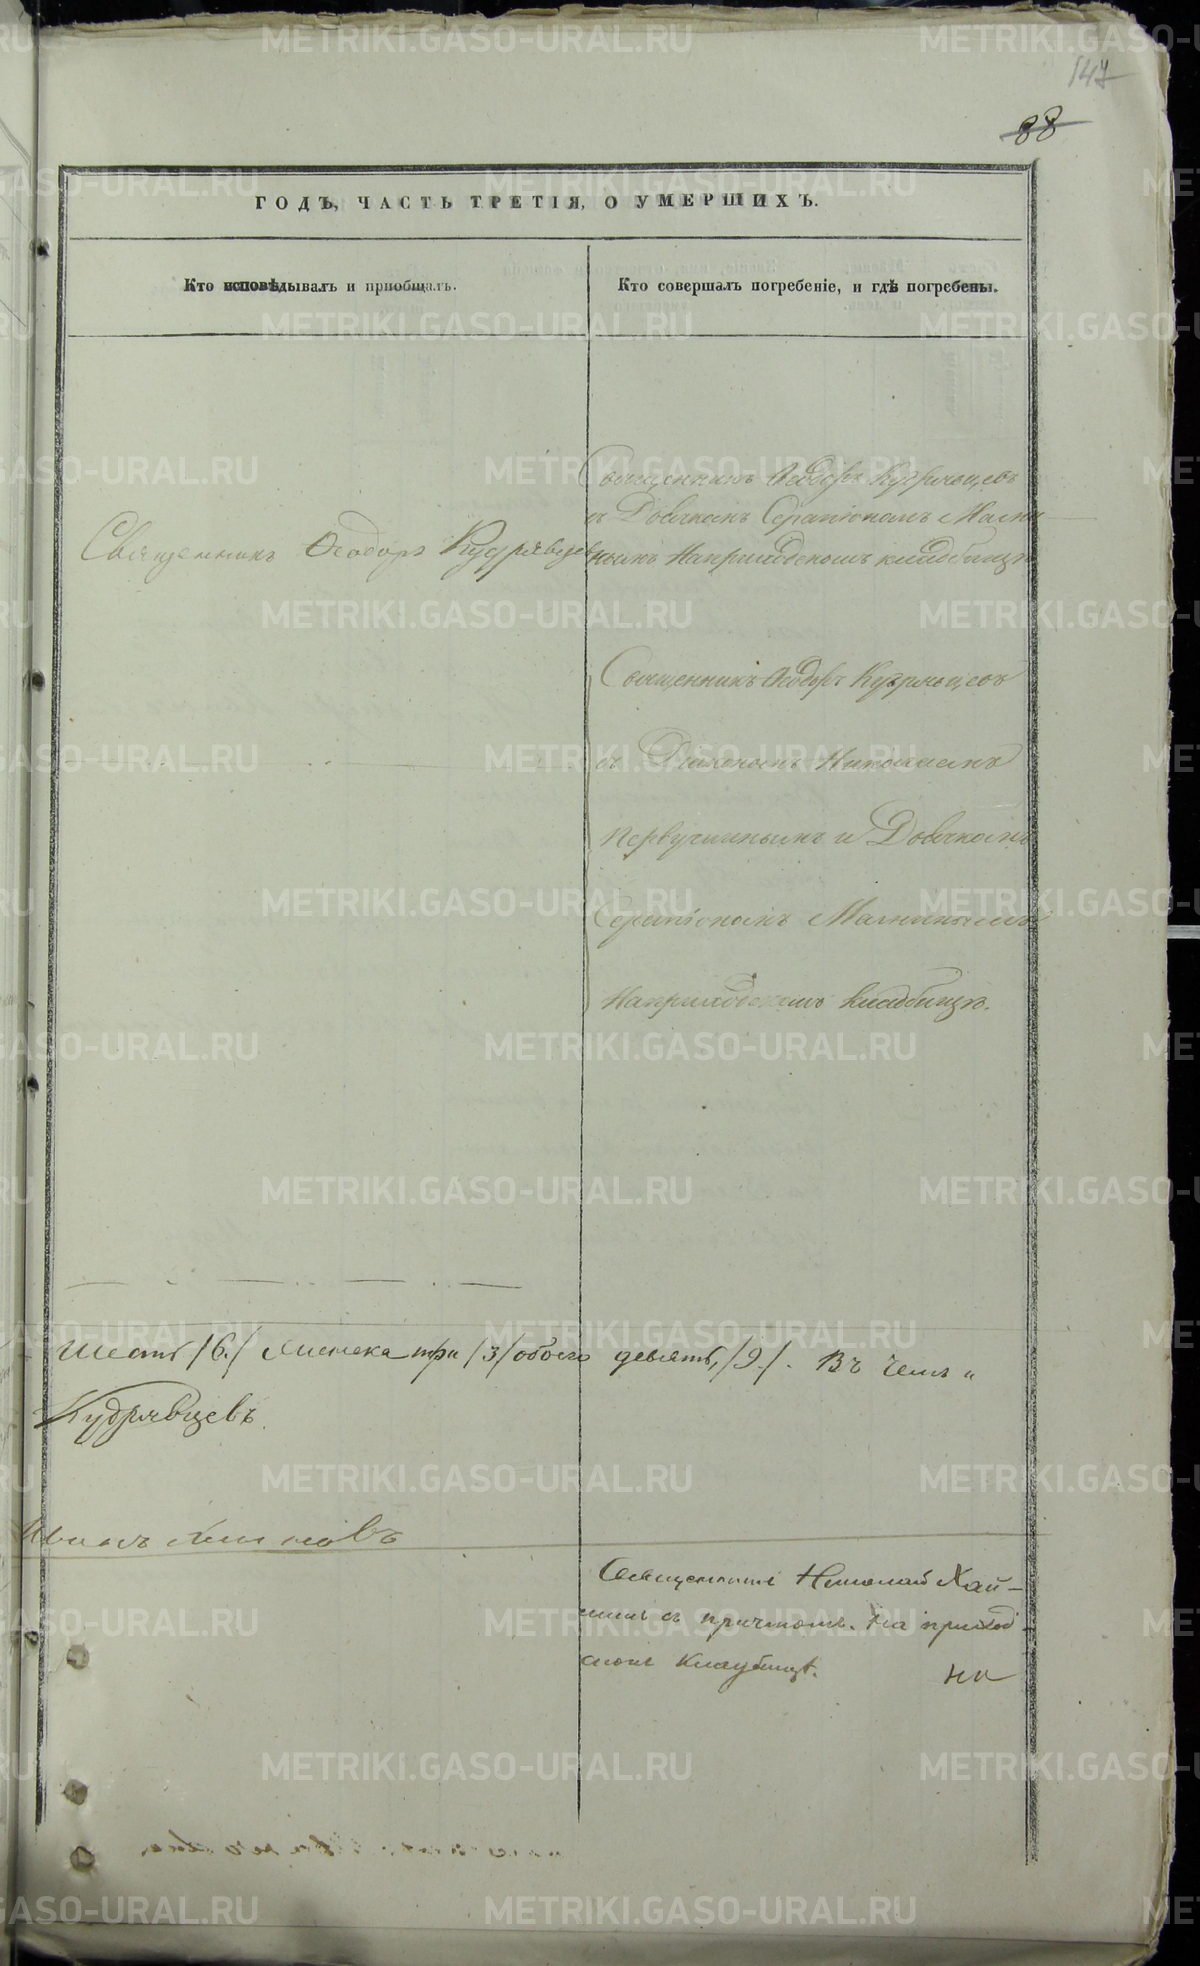 147
88
ГОДЪ, ЧАСТЬ ТРЕТІЯ, О УМЕРШИХЪ.
Кто исповѣдывалъ и пріобщалъ.
Кто совершалъ погребеніе, и гдѣ погребены.
Священникъ Ѳеодоръ Кудрявцевъ
Священникъ Ѳеодоръ Кудрявцевъ
съ Дьячкомъ Серапіономъ
На приходскомъ кладбищѣ
Священникъ Ѳеодоръ Кудрявцевъ
съ Діакономъ Николаемъ
и Дьячкомъ
Серапіономъ
На приходскомъ кладбищѣ.
Шесть /6./ Женска три /3/ обоего девять, /9/. Въ чемъ "
Кудрявцевъ.
Священникъ Николай
съ причтомъ. На приход-
скомъ кладбищѣ.
METRIKI.GASO-URAL.RU